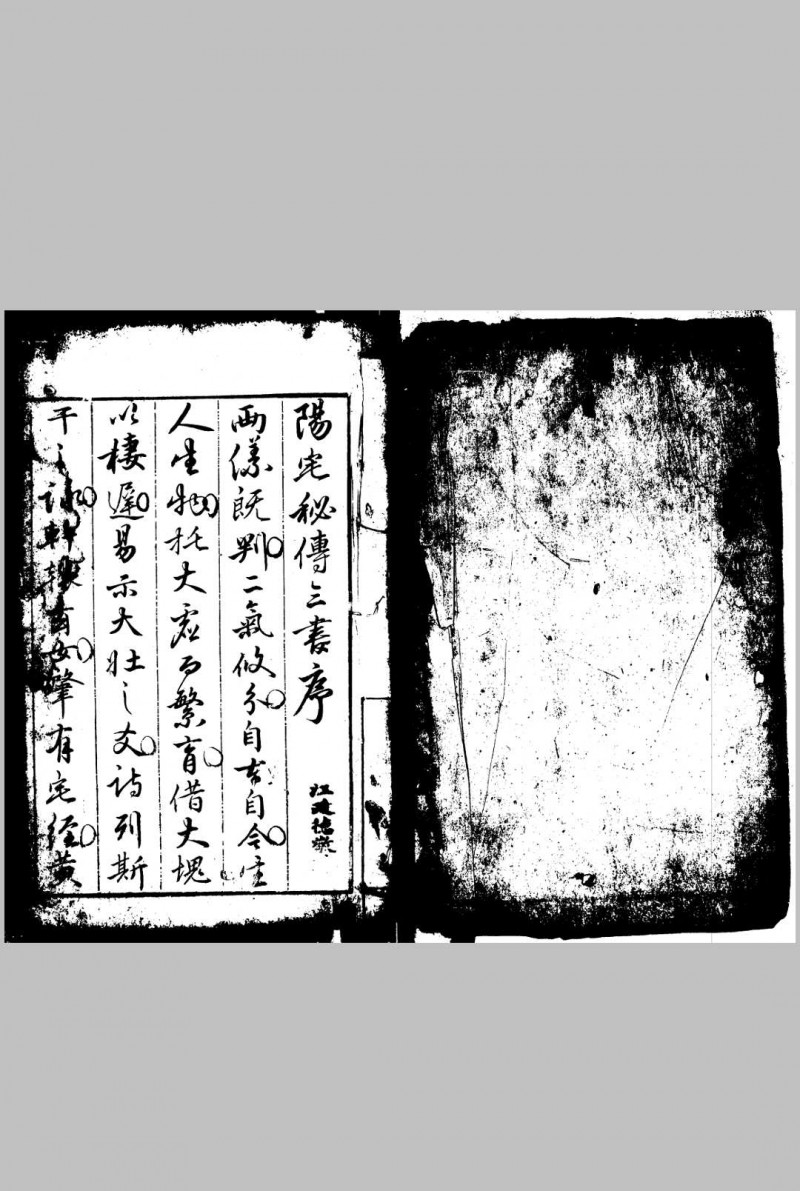 陽宅秘傳三書序
江 德
兩儀既判。二氣攸分。自古自今。生
人生物。托大虛而繁育。借大塊
以棲遲。易示大壯之爻。詩列斯
干之詠。軒轅 肇有宅經。黃